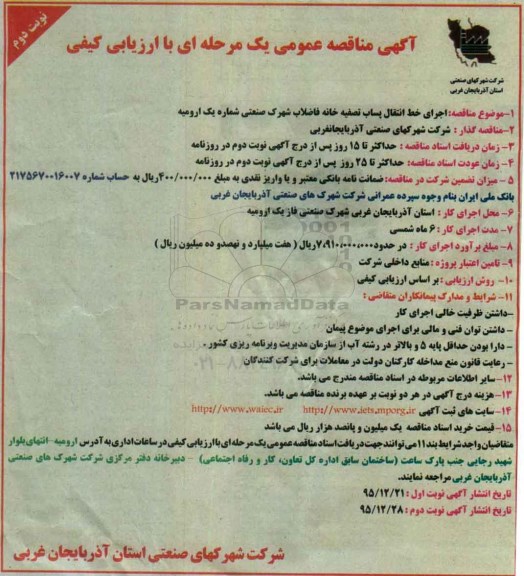 نوبت دوم
آگهی مناقصه عمومی یک مرحله ای با ارزیابی کیفی
شرکت شهرکهای صنعتی
استان آذربایجان غربی
۱-موضوع مناقصه:اجرای خط انتقال پساب تصفیه خانه فاضلاب شهرک صنعتی شماره یک ارومیه
۲-مناقصه گذار : شرکت شهرکهای صنعتی آذربایجانغربی
۳- زمان دریافت اسناد مناقصه : حداکثر تا ۱۵ روز پس از درج آگهی نوبت دوم در روزنامه
۴- زمان عودت اسناد مناقصه: حداکثر تا ۲۵ روز پس از درج آگهی نوبت دوم در روزنامه
۵ - میزان تضمین شرکت در مناقصه:ضمانت نامه بانکی معتبر و یا واریز نقدی به مبلغ ۴۰۰/۰۰۰/۰۰۰ریال به حساب شماره ۲۱۷۵۶۷۰۰۱۶۰۰۷
بانک ملی ایران بنام وجوه سپرده عمرانی شرکت شهرک های صنعتی آذربایجان غربی
۶- محل اجرای کار : استان آذربایجان غربی شهرک صنعتی فاز یک ارومیه
۷- مدت اجرای کار : ۶ ماه شمسی
۸- مبلغ برآورد اجرای کار : در حدود۷،۹۱۰،۰۰۰،۰۰۰ریال ( هفت میلیارد و نهصدو ده میلیون ریال )
۹- تامین اعتبار پروژه : منابع داخلی شرکت
۱۰- روش ارزیابی : بر اساس ارزیابی کیفی
۱۱- شرایط و مدارک پیمانکاران متقاضی :
-داشتن ظرفیت خالی اجرای کار
- داشتن توان فنی و مالی برای اجرای موضوع پیمان
- دارا بودن حداقل پایه ۵ و بالاتر در رشته آب از سازمان مدیریت وبرنامه ریزی کشور .
- رعایت قانون منع مداخله کارکنان دولت در معاملات برای شرکت کنندگان
۱۲-سایر اطلاعات مربوطه در اسناد مناقصه مندرج می باشد.
۱۳- هزینه درج آگهی در هر دو نوبت بر عهده برنده مناقصه می باشد.
۱۴- سایت های ثبت آگهی http://www.iets.mporg.ir http://www.waiec.ir
۱۵- قیمت خرید اسناد مناقصه یک میلیون و پانصد هزار ریال می باشد
متقاضیان واجد شرایط بند ۱۱ می توانند جهت دریافت اسناد مناقصه عمومی یک مرحله ای با ارزیابی کیفی در ساعات اداری به آدرس ارومیه-انتهای بلوار
شهید رجایی جنب پارک ساعت (ساختمان سابق اداره کل تعاون، کار و رفاه اجتماعی) - دبیرخانه دفتر مرکزی شرکت شهرک های صنعتی
آذربایجان غربی مراجعه نمایند.
تاریخ انتشار آگهی نوبت اول : ۹۵/۱۲/۲۱
تاریخ انتشار آگهی نوبت دوم : ۹۵/۱۲/۲۸
شرکت شهرکهای صنعتی استان آذربایجان غربی
ParsNamadData